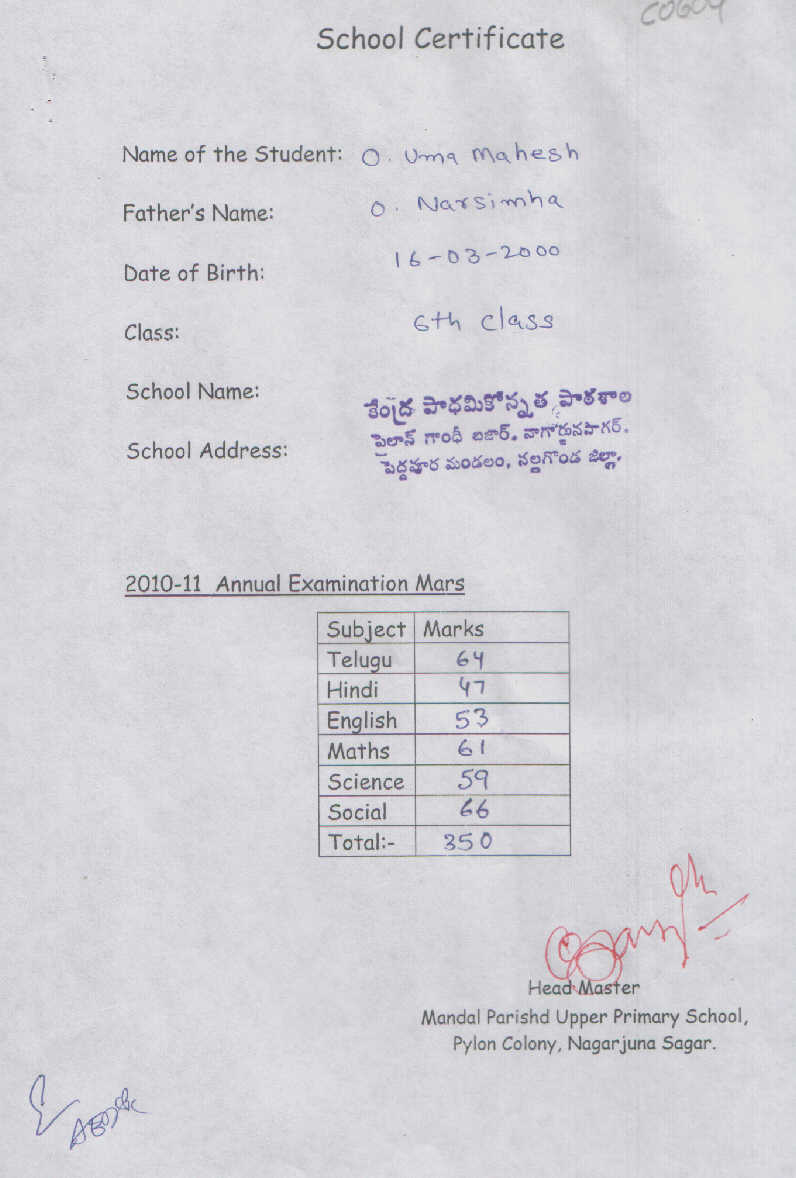 COG04
School Certificate
Name of the Student: O. Uma Mahesh
Father's Name: O. Narsimha
Date of Birth: 16-03-2000
Class: 6th class
School Name: కేంద్ర ప్రాధమికోన్నత పాఠశాల
School Address: పైలాన్ గాంధీ బజార్, నాగార్జునసాగర్.
పెద్దవూర మండలం, నల్లగొండ జిల్లా.
2010-11 Annual Examination Mars
Subject Marks
Telugu 64
Hindi 47
English 53
Maths 61
Science 59
Social 66
Total:- 350
Head Master
Mandal Parishd Upper Primary School,
Pylon Colony, Nagarjuna Sagar.